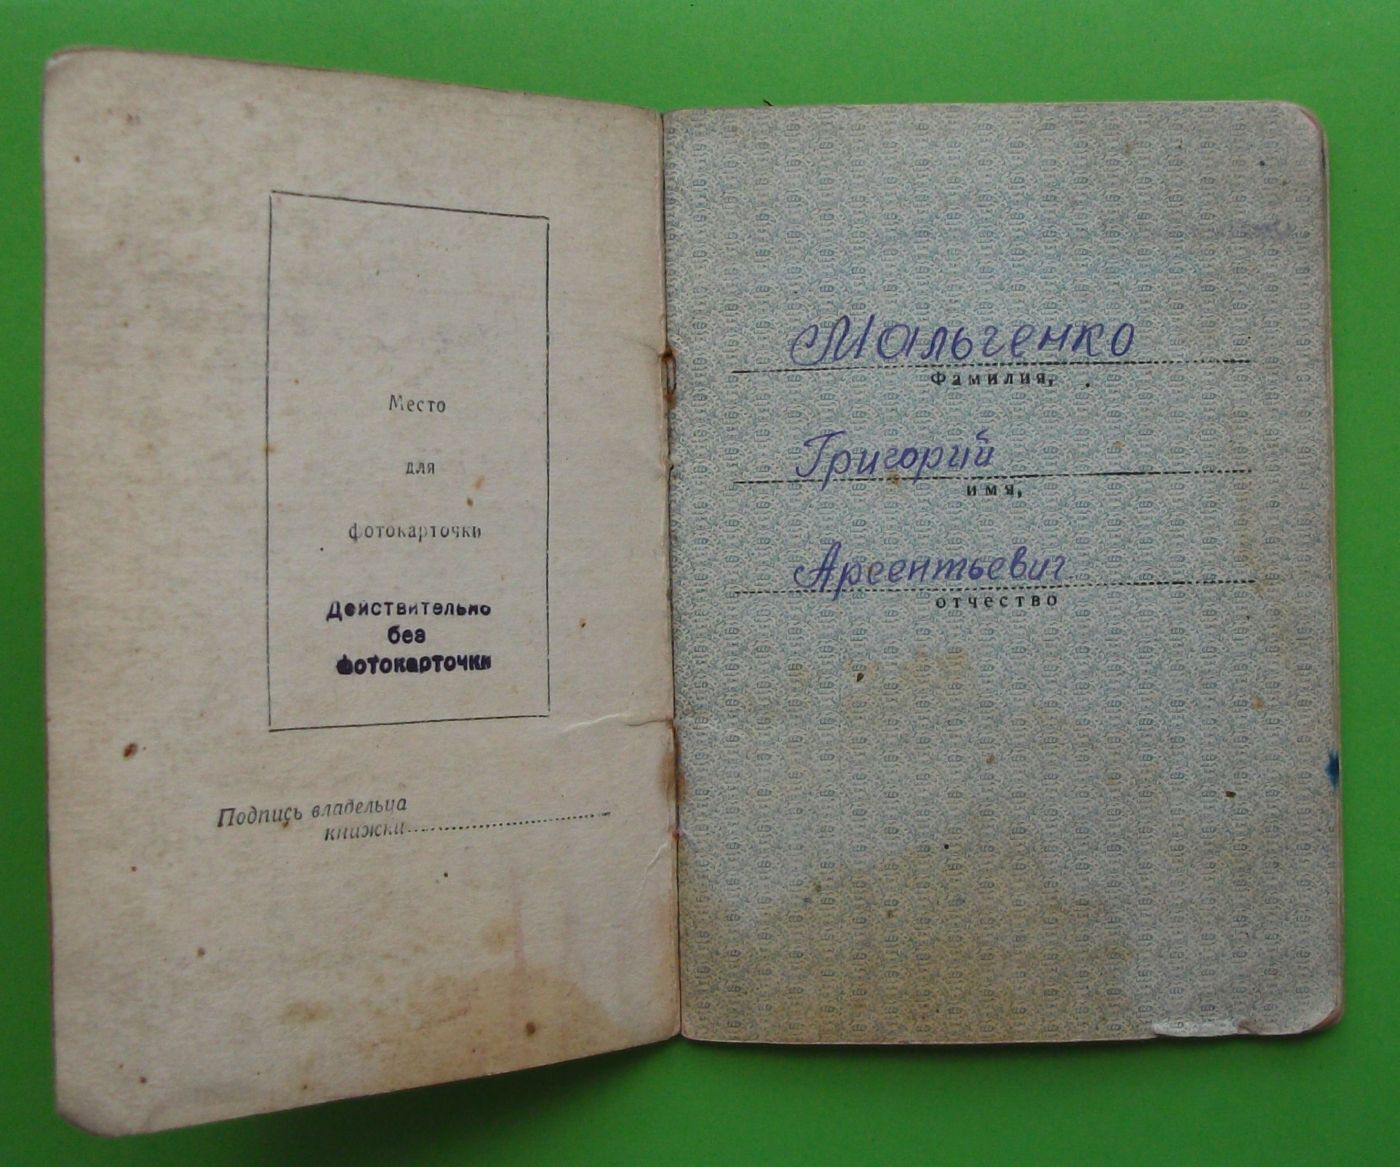 Место
для
фотокарточки
Действительно
без
фотокарточки
Подпись владельца
книжки
Мальченко
Фамилия,
Григорий
имя,
Арсентьевич
отчество